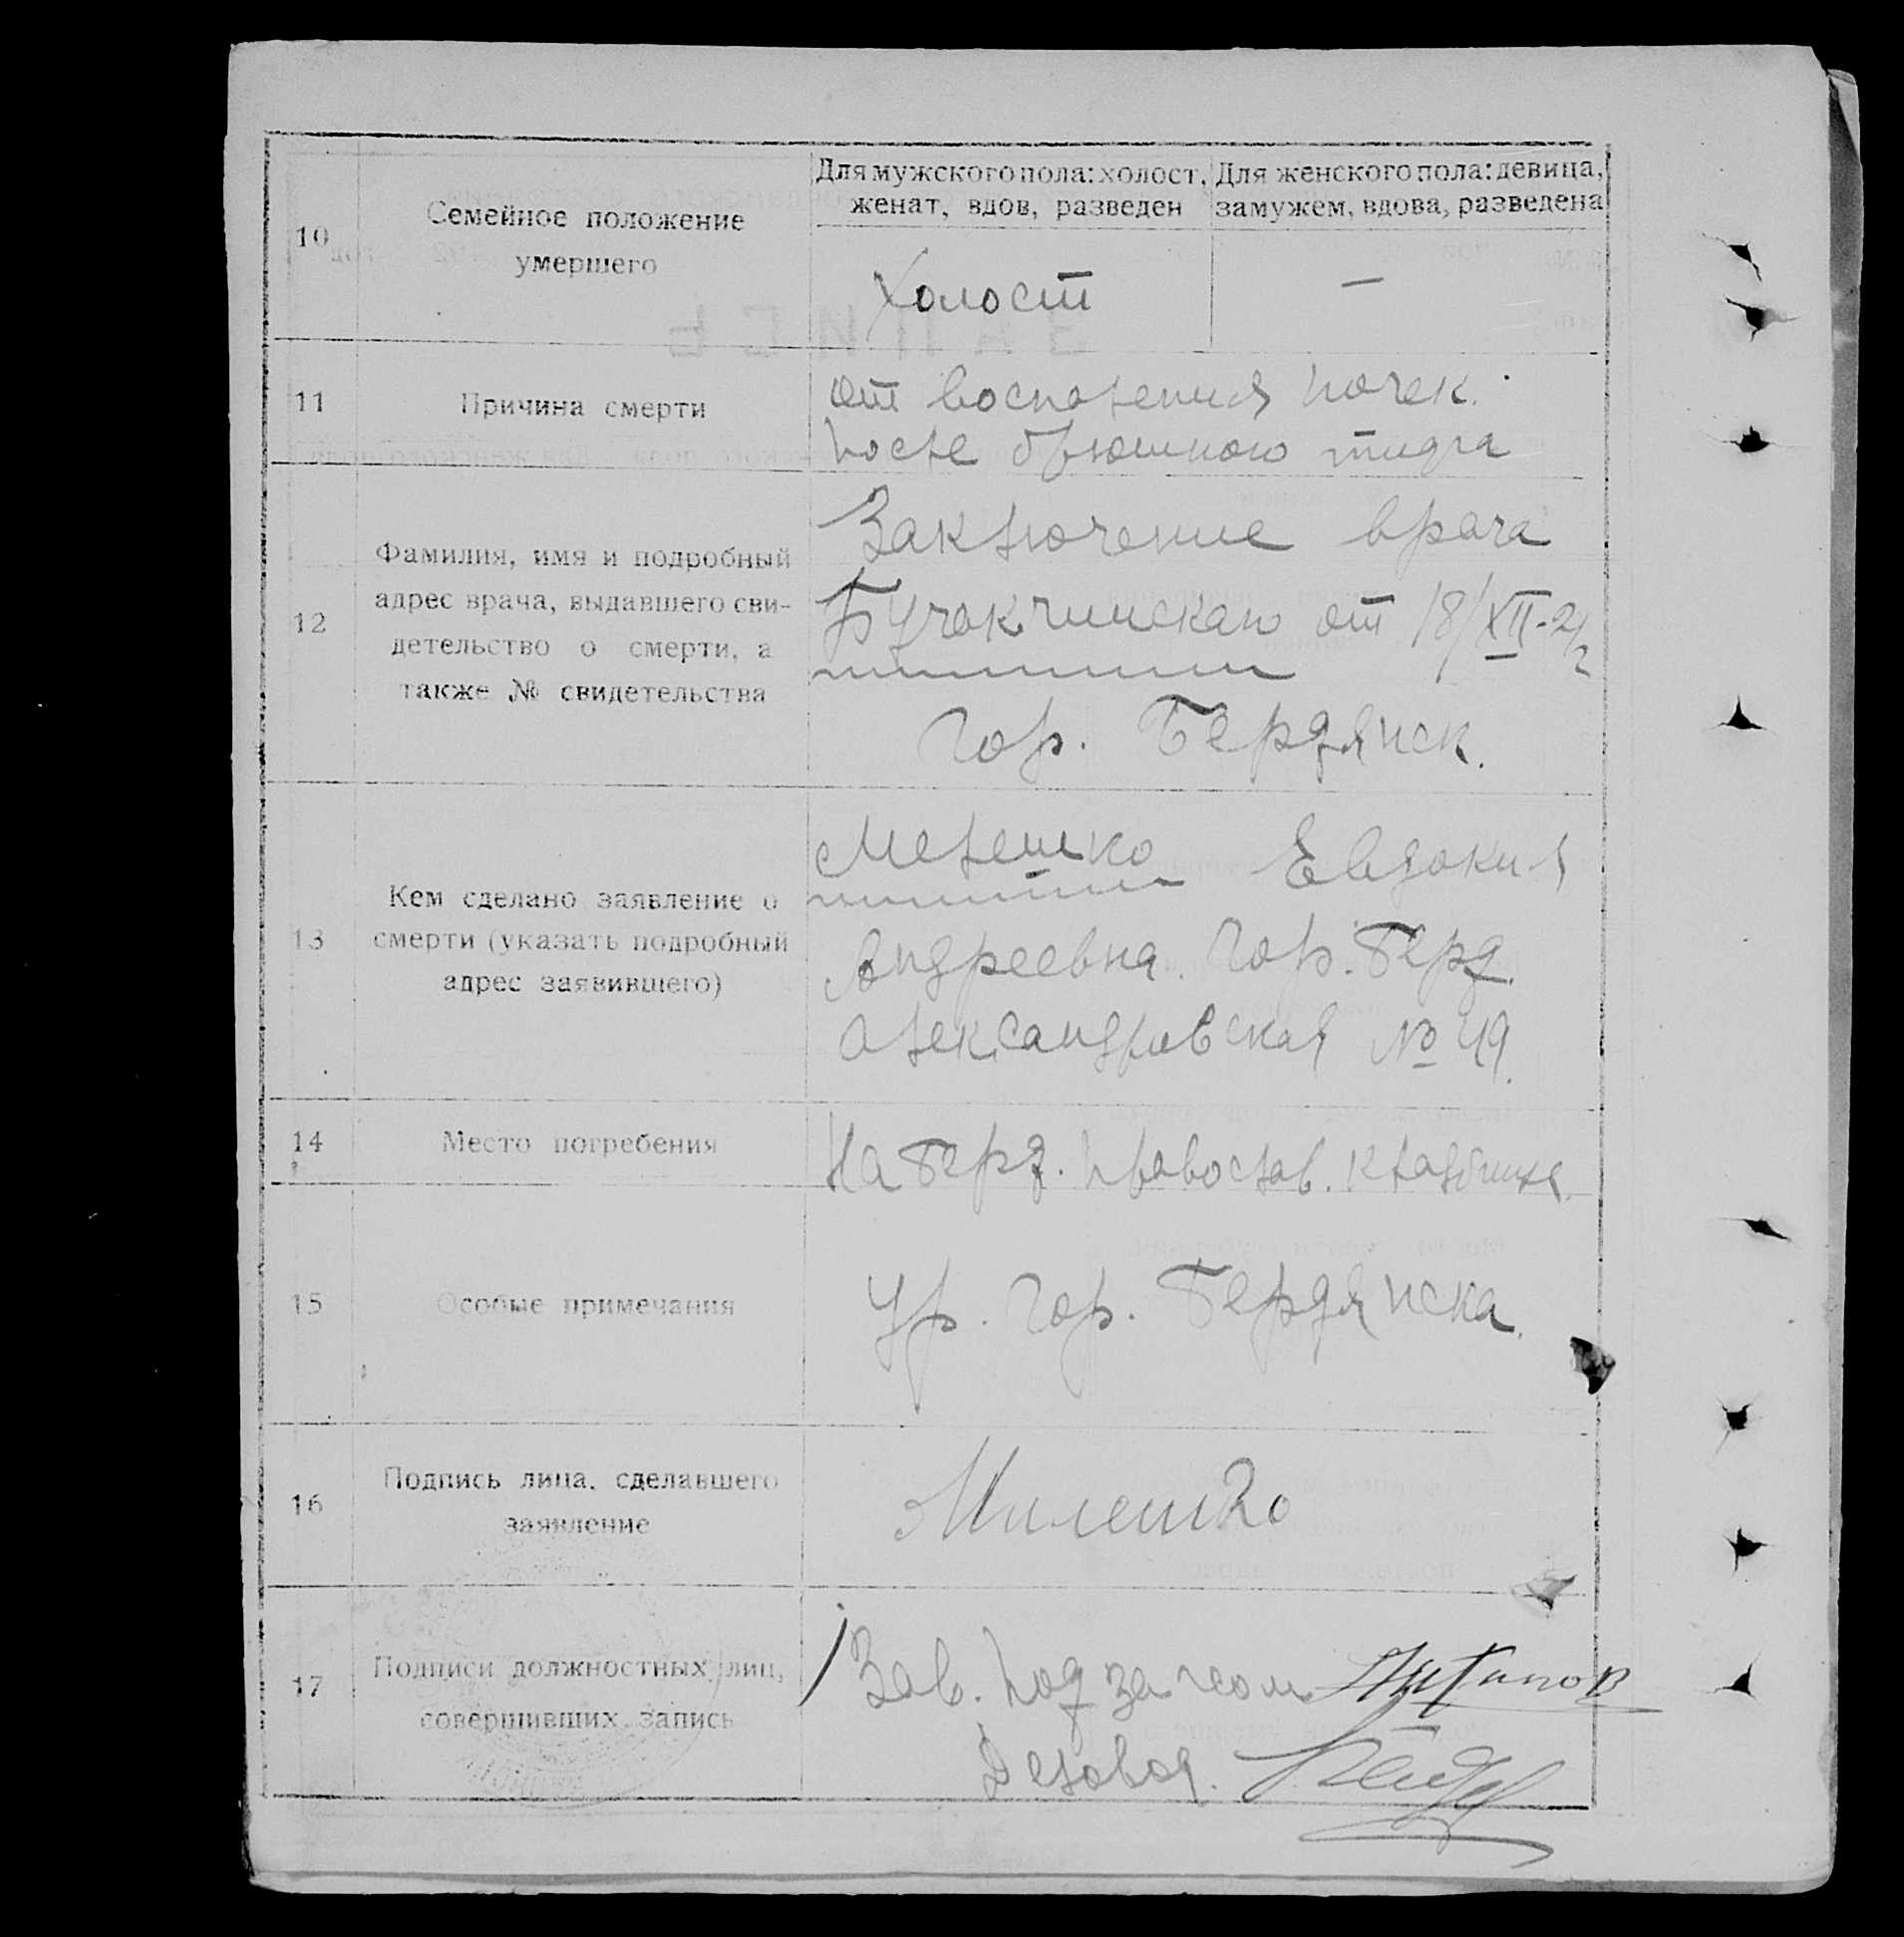 Для мужского пола: холост, женат, вдов, разведен
Для женского пола: девица, замужем, вдова, разведена
10
Семейное положение
умершего
Холост
—
11
Причина смерти
от воспаления почек.
после брюшного тифа
12
Фамилия, имя и подробный
адрес врача, выдавшего сви-
детельство о смерти, а
также № свидетельства
Заключение врача
от 18/XII-2
гор. Бердянск.
13
Кем сделано заявление о
смерти (указать подробный
адрес заявившего)
Мелешко Евдокия
Андреевна. гор. Берд.
Александровская № 49.
14
Место погребения
На Берд. православ. кладбище.
15
Особые примечания
Ур. гор. Бердянска.
16
Подпись лица, сделавшего
заявление
Милешко
17
Подписи должностных лиц,
совершивших запись
Зав. подзагсом
Деловод.